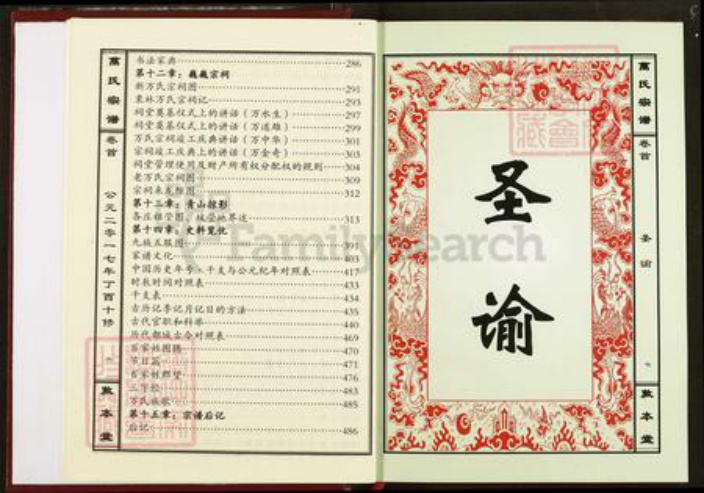 萬氏宗谱
卷首
公元二零一七年丁酉十修
敦本堂
书法家典 286
第十二章：巍巍宗祠
新万氏宗祠图 291
栗林万氏宗祠记 293
祠堂奠基仪式上的讲话（万水生） 297
祠堂奠基仪式上的讲话（万道雄） 299
万氏宗祠竣工庆典讲话（万中华） 301
宗祠竣工庆典上的讲话（万金奇） 303
祠堂管理使用及财产所有权分配权的规则 304
老万氏宗祠图 309
宗祠来龙脉图 312
第十三章：青山掠影
各庄祖茔图、坟茔地界述 313
第十四章：史料览优
九族五服图 391
家谱文化 403
中国历史年号、干支与公元纪年对照表 417
时辰时间对照表 433
干支表 434
古历记季记月记日的方法 435
古代官职和科举 440
历代都城古今对照表 469
百家姓图腾 470
节日篇 471
百家姓郡望 476
三字经 483
万氏族歌 485
第十五章：宗谱后记
后记 486
圣谕
萬氏宗谱
卷首
圣谕
敦本堂
FamilySearch